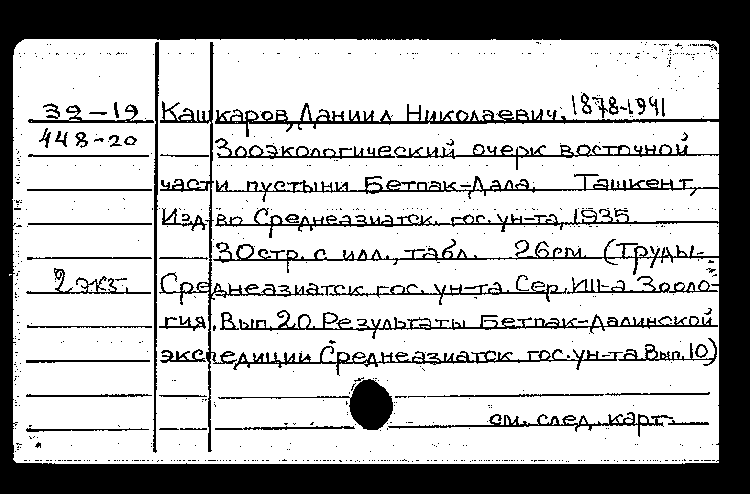 39-19 Кашкаров, Даниил Николаевич, 1878-1941
448-20 Зооэкологический очерк восточной
части пустыни Бетпак-Дала. Ташкент,
Изд-во Среднеазиатск. гос. ун-та, 1935.
30 стр. с илл., табл. 26 см. (Труды
2 экз. Среднеазиатск. гос. ун-та. Сер. VIII-а. Зооло-
гия, Вып. 20. Результаты Бетпак-Далинской
экспедиции Среднеазиатск. гос. ун-та. Вып. 10)
см. след. карт.